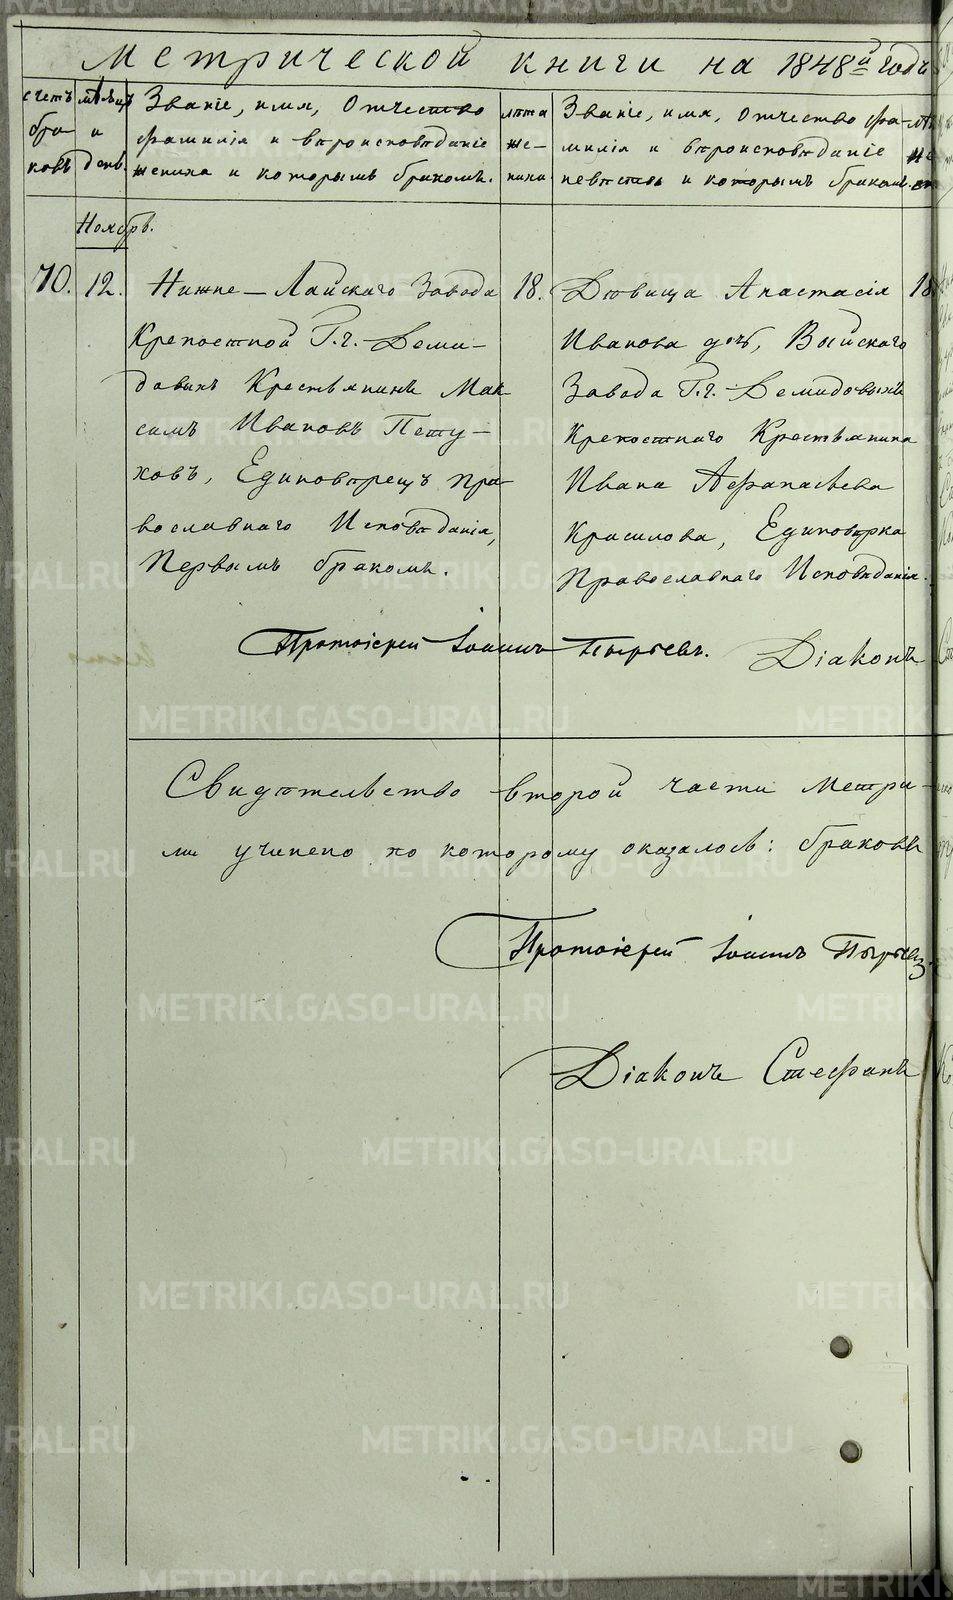 Метрической книги на 1848й годъ
счетъ браковъ
мѣсяцъ и день.
Званіе, имя, Отчество
фамилія и вѣроисповѣданіе
жениха и которымъ бракомъ.
лѣта жениха
Званіе, имя, отчество фа-
милія и вѣроисповѣданіе
невѣсты и которымъ бракомъ.
Ноябрь.
70.
12.
Нижне-Лайскаго Завода
Крепостной Г.г. Деми-
довыхъ Крестьянинъ Мак-
симъ Ивановъ Пету-
ховъ, Единовѣрецъ пра-
вославнаго Исповѣданія,
Первымъ бракомъ.
18.
Дѣвица Анастасія
Иванова дочь, Выйскаго
Завода Г.г. Демидовыхъ
Крепостнаго Крестьянина
Ивана Афанасьева
Красилова, Единовѣрка
Православнаго Исповѣданія.
18
Протоіерей Іоаннъ Пырьевъ.
Діаконъ
Свидѣтельство второй части Метри-
ки учинено по которому оказалось: браковъ
Протоіерей Іоаннъ Пырьевъ
Діаконъ Стефанъ
METRIKI.GASO-URAL.RU